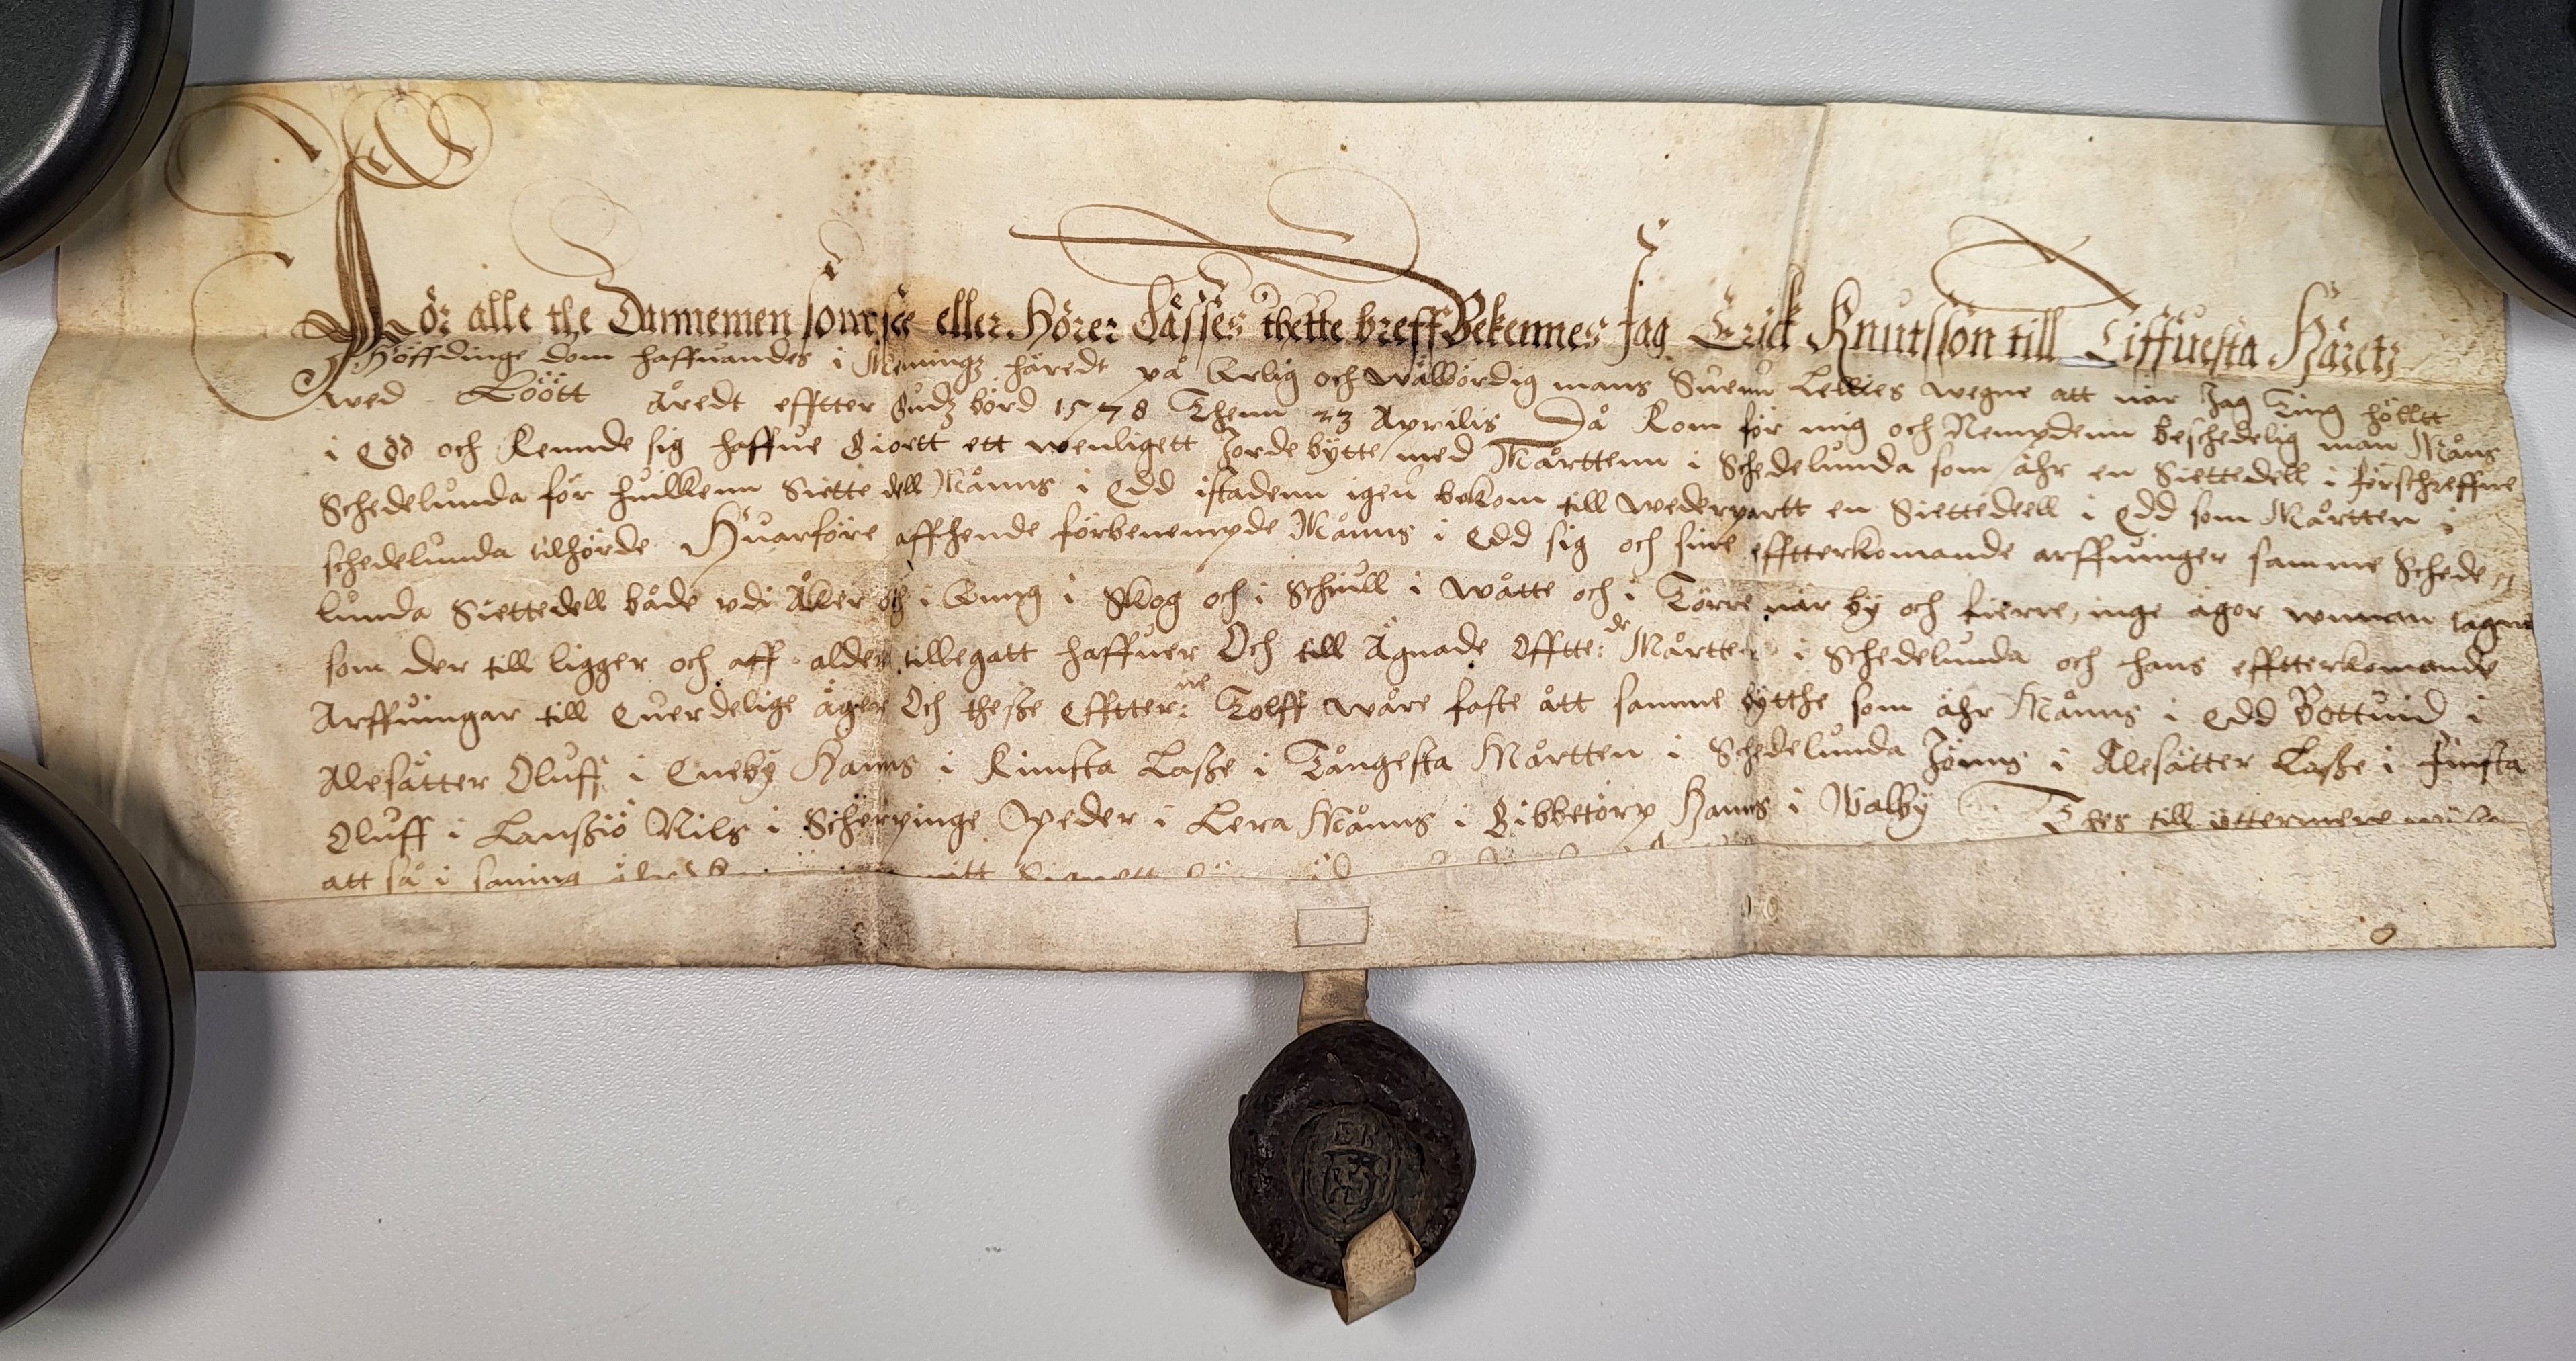 För alle the Dannemen som see eller Hörer Lässes thette breff Bekennes Jag Erick Knutsson till Liffuesta Häretz
Höffdinge dom haffuandes i Memingz häredt på Erlig och wälbördig mans Suenn Lellies wegne att när Jag Ting höllt
wed Löött Åredt efftter Gudz börd 1578 Thenn 23 Aprilis Då Kom för mig och Nempdenn beschedelig man Måns
i Edd och Kennde sig haffue Giortt ett wenligett Jorde bytte med Mårttenn i Schedelunda som ähr en Siettedell i förschreffne
Schedelunda för huilkenn Siette dell Månns i Edd istadenn igen bekom till wederpartt en Siettedeell i Edd som Mårtten i
schedelunda tilhörde Huarföre affhende förbenempde Månns i Edd sig och sine efftterkomande arffuinger samme Schede
lunda Siettedell både vdi Åker och i Eung i Skog och i Schiull i wåtte och i Törre när by och fierre, inge ägor wnnan tagne
som der till ligger och aff alder tillegatt haffuer Och till Ägnade Offtte:de Mårtten i Schedelunda och hans efftterkomande
Arffuingar till Euerdelige äger Och thesse Efftter:ne Tolff wåre faste ått samme bytthe som ähr Månns i Edd Bottuid i
Alesätter Oluff i Eneby Hanns i Kimsta Lasse i Tångesta Mårtten i Schedelunda Jönns i Alesätter Lasse i Finsta
Oluff i Lanssiö Nils i Schérpinge Peder i Lera Månns i Gibbetorp Hanns i Walby Thes till yttermere
att så i sanning mitt Signett
EK